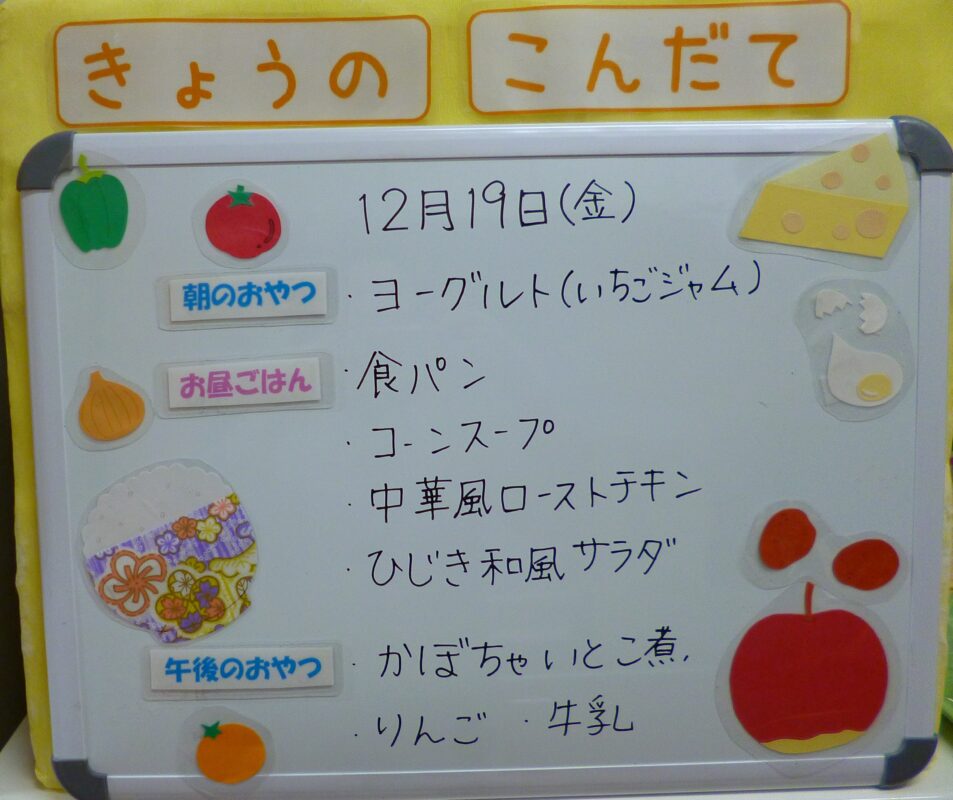 きょうの こんだて
12月19日(金)
朝のおやつ ・ヨーグルト(いちごジャム)
お昼ごはん ・食パン
・コーンスープ
・中華風ローストチキン
・ひじき和風サラダ
午後のおやつ ・かぼちゃいとこ煮
・りんご ・牛乳